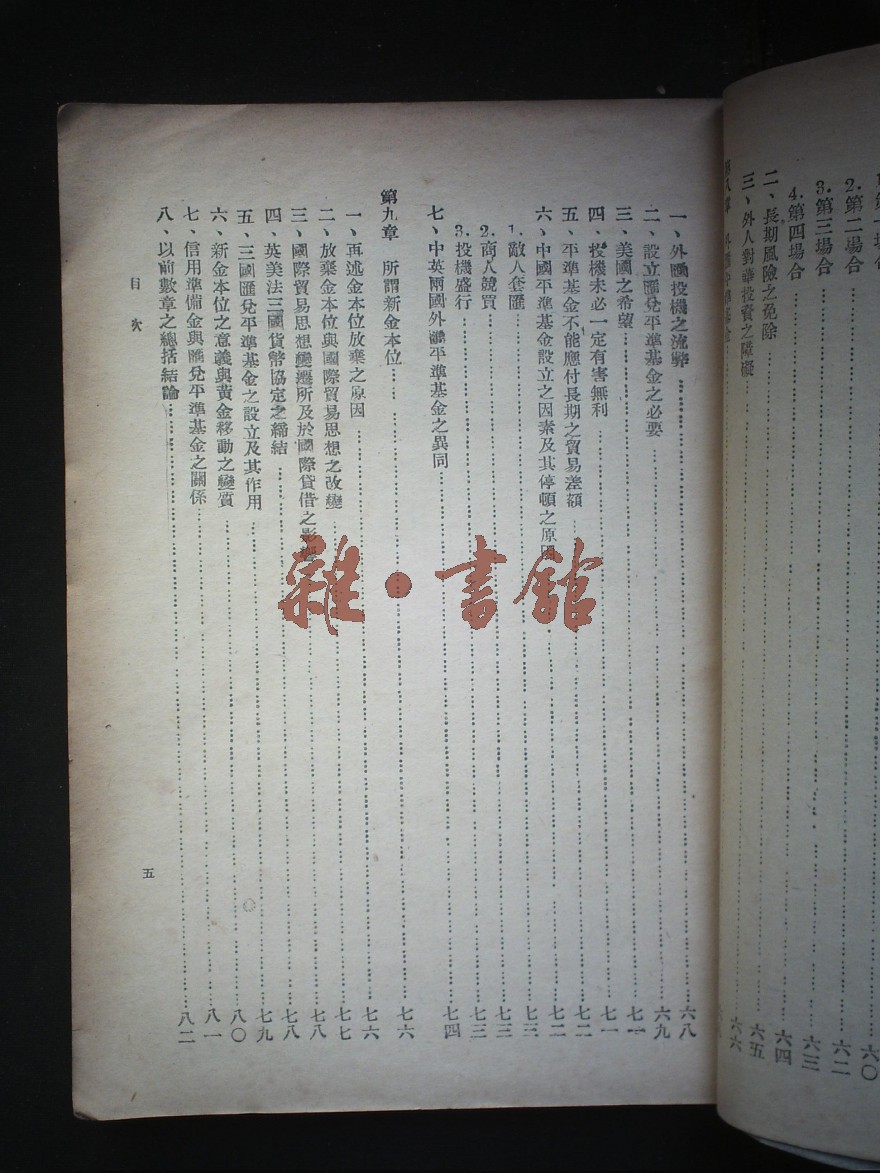 2.第二場合……六二
3.第三場合……六三
4.第四場合……六四
二、長期風險之免除……六五
三、外人對華投資之障礙……六六
一、外匯投機之流弊……六八
二、設立匯兌平準基金之必要……六九
三、美國之希望……七一
四、投機未必一定有害無利……七一
五、平準基金不能應付長期之貿易差額……七二
六、中國平準基金設立之因素及其停頓之原因……七二
1.敵人套匯……七三
2.商人競買……七三
3.投機盛行……七三
七、中英兩國外匯平準基金之異同……七四
第九章 所謂新金本位……七六
一、再述金本位放棄之原因……七六
二、放棄金本位與國際貿易思想之改變……七七
三、國際貿易思想變遷所及於國際貸借之影響……七八
四、英美法三國貨幣協定之締結……七八
五、三國匯兌平準基金之設立及其作用……七九
六、新金本位之意義與黃金移動之變質……八〇
七、信用準備金與匯兌平準基金之關係……八一
八、以前數章之總括結論……八二
目次
五
雜·書館